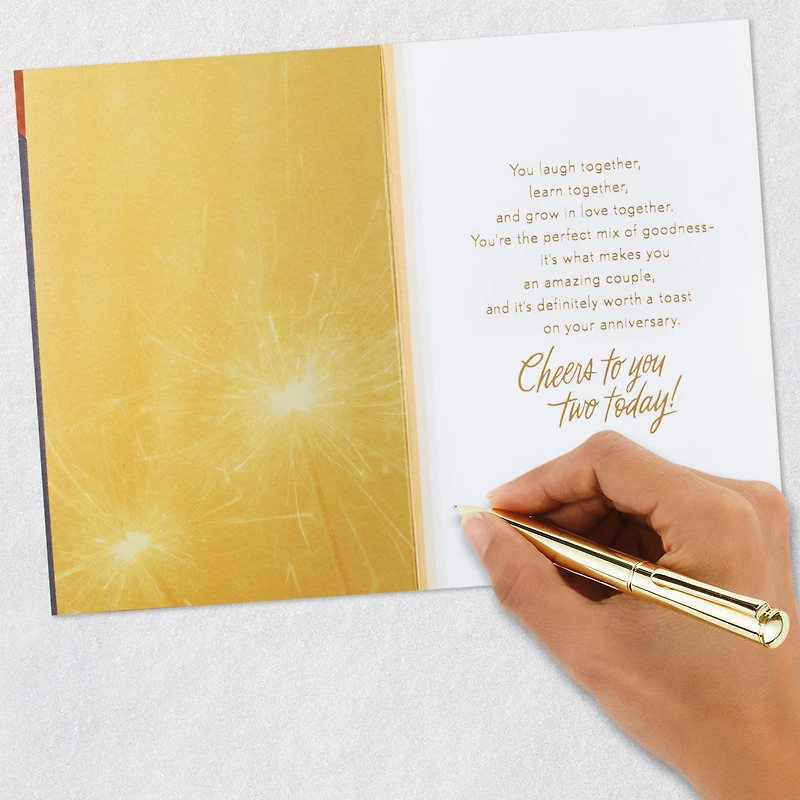 You laugh together,
learn together,
and grow in love together.
You're the perfect mix of goodness–
it's what makes you
an amazing couple,
and it's definitely worth a toast
on your anniversary.
Cheers to you
two today!